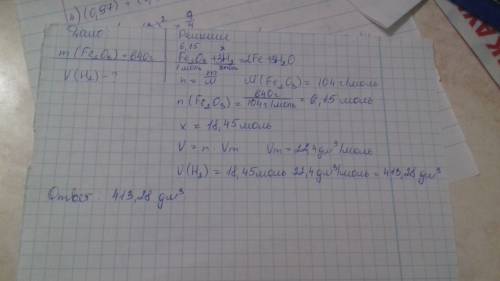 а) (0,97)
x² = 9/4
Дано Решение
6,15 x
m(Fe₂O₃) = 640г Fe₂O₃ + 3H₂ = 2Fe + 3H₂O
1 моль 3 моль
V(H₂) - ? n = m/M M(Fe₂O₃) = 104 г/моль
n(Fe₂O₃) = 640г / 104 г/моль = 6,15 моль
x = 18,45 моль
V = n · Vm Vm = 22,4 дм³/моль
V(H₂) = 18,45 моль · 22,4 дм³/моль = 413,28 дм³
Ответ: 413,28 дм³